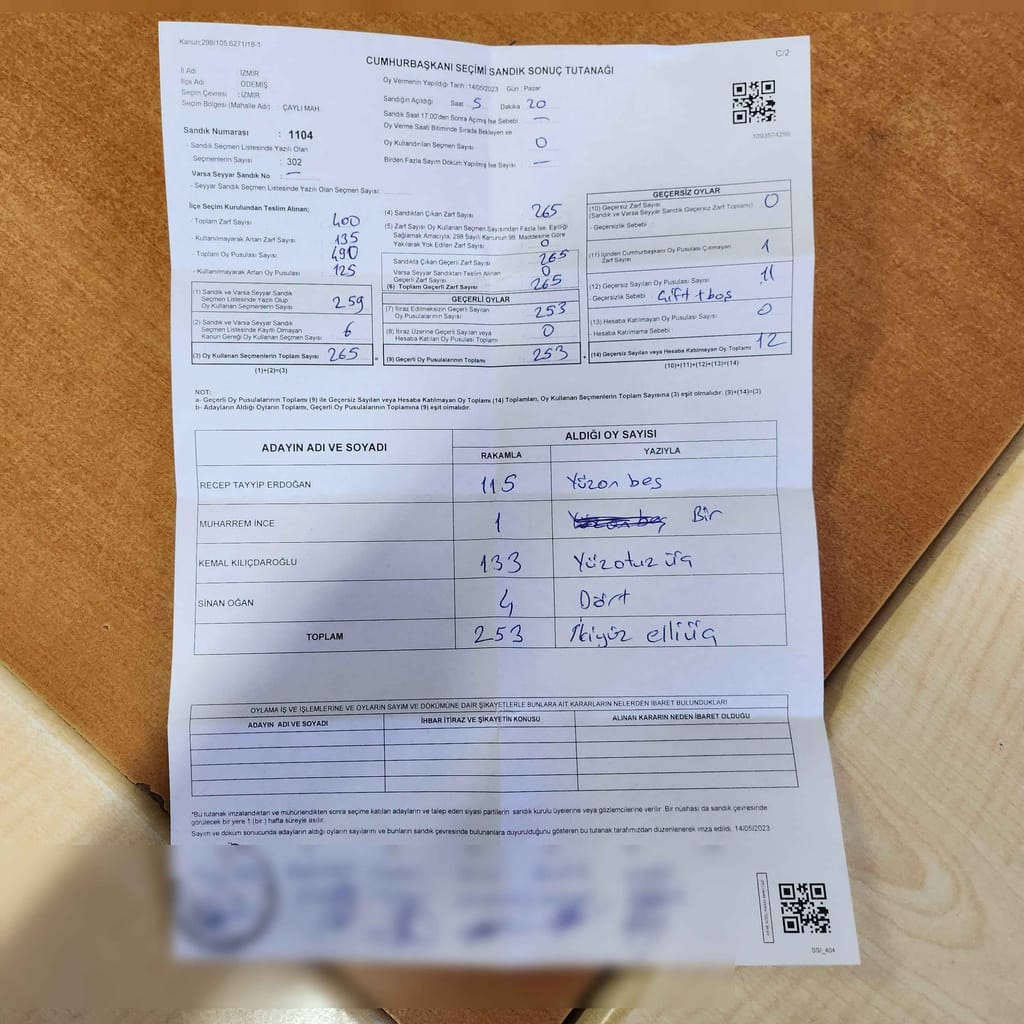 Kanun:298/105;6271/18-1
C/2
CUMHURBAŞKANI SEÇİMİ SANDIK SONUÇ TUTANAĞI
İl Adı : İZMİR
İlçe Adı : ÖDEMİŞ
Seçim Çevresi : İZMİR
Seçim Bölgesi (Mahalle Adı) : ÇAYLI MAH.
Sandık Numarası : 1104
- Sandık Seçmen Listesinde Yazılı Olan
Seçmenlerin Sayısı : 302
Varsa Seyyar Sandık No : —
- Seyyar Sandık Seçmen Listesinde Yazılı Olan Seçmen Sayısı:
Oy Vermenin Yapıldığı Tarih :14/05/2023 Gün : Pazar
Sandığın Açıldığı Saat 5 Dakika 20
Sandık Saat 17.00'den Sonra Açılmış İse Sebebi : —
Oy Verme Saati Bitiminde Sırada Bekleyen ve
Oy Kullandırılan Seçmen Sayısı : 0
Birden Fazla Sayım Döküm Yapılmış İse Sayısı : —
1093574299
İlçe Seçim Kurulundan Teslim Alınan;
- Toplam Zarf Sayısı : 400
- Kullanılmayarak Artan Zarf Sayısı : 135
- Toplam Oy Pusulası Sayısı : 490
- Kullanılmayarak Artan Oy Pusulası : 125
(1) Sandık ve Varsa Seyyar Sandık
Seçmen Listesinde Yazılı Olup
Oy Kullanan Seçmenlerin Sayısı 259
(2) Sandık ve Varsa Seyyar Sandık
Seçmen Listesinde Kayıtlı Olmayan
Kanun Gereği Oy Kullanan Seçmen Sayısı 6
(3) Oy Kullanan Seçmenlerin Toplam Sayısı 265
(1)+(2)=(3)
(4) Sandıktan Çıkan Zarf Sayısı 265
(5) Zarf Sayısı Oy Kullanan Seçmen Sayısından Fazla İse, Eşitliği
Sağlamak Amacıyla; 298 Sayılı Kanunun 98. Maddesine Göre
Yakılarak Yok Edilen Zarf Sayısı 0
Sandıkta Çıkan Geçerli Zarf Sayısı 265
Varsa Seyyar Sandıktan Teslim Alınan
Geçerli Zarf Sayısı 0
(6) Toplam Geçerli Zarf Sayısı 265
GEÇERLİ OYLAR
(7) İtiraz Edilmeksizin Geçerli Sayılan
Oy Pusulalarının Sayısı 253
(8) İtiraz Üzerine Geçerli Sayılan veya
Hesaba Katılan Oy Pusulası Toplamı 0
= (9) Geçerli Oy Pusulalarının Toplamı 253
GEÇERSİZ OYLAR
(10) Geçersiz Zarf Sayısı 0
(Sandık ve Varsa Seyyar Sandık Geçersiz Zarf Toplamı)
- Geçersizlik Sebebi :
(11) İçinden Cumhurbaşkanı Oy Pusulası Çıkmayan
Zarf Sayısı 1
(12) Geçersiz Sayılan Oy Pusulası Sayısı 11
- Geçersizlik Sebebi : Çift + boş
(13) Hesaba Katılmayan Oy Pusulası Sayısı 0
- Hesaba Katılmama Sebebi :
+ (14) Geçersiz Sayılan veya Hesaba Katılmayan Oy Toplamı 12
(10)+(11)+(12)+(13)=(14)
NOT:
a- Geçerli Oy Pusulalarının Toplamı (9) ile Geçersiz Sayılan veya Hesaba Katılmayan Oy Toplamı (14) Toplamları, Oy Kullanan Seçmenlerin Toplam Sayısına (3) eşit olmalıdır. (9)+(14)=(3)
b- Adayların Aldığı Oyların Toplamı, Geçerli Oy Pusulalarının Toplamına (9) eşit olmalıdır.
ADAYIN ADI VE SOYADI
ALDIĞI OY SAYISI
RAKAMLA YAZIYLA
RECEP TAYYİP ERDOĞAN 115 Yüzon beş
MUHARREM İNCE 1 Yüzon beş Bir
KEMAL KILIÇDAROĞLU 133 Yüzotuz üç
SİNAN OĞAN 4 Dört
TOPLAM 253 İkiyüz elliüç
OYLAMA İŞ VE İŞLEMLERİNE VE OYLARIN SAYIM VE DÖKÜMÜNE DAİR ŞİKAYETLERLE BUNLARA AİT KARARLARIN NELERDEN İBARET BULUNDUKLARI
ADAYIN ADI VE SOYADI İHBAR İTİRAZ VE ŞİKAYETİN KONUSU ALINAN KARARIN NEDEN İBARET OLDUĞU
*Bu tutanak imzalandıktan ve mühürlendikten sonra seçime katılan adayların ve talep eden siyasi partilerin sandık kurulu üyelerine veya gözlemcilerine verilir. Bir nüshası da sandık çevresinde
görülecek bir yere 1 (bir) hafta süreyle asılır.
Sayım ve döküm sonucunda adayların aldığı oyların sayılarını ve bunların sandık çevresinde bulunanlara duyurulduğunu gösteren bu tutanak tarafımızdan düzenlenerek imza edildi. 14/05/2023